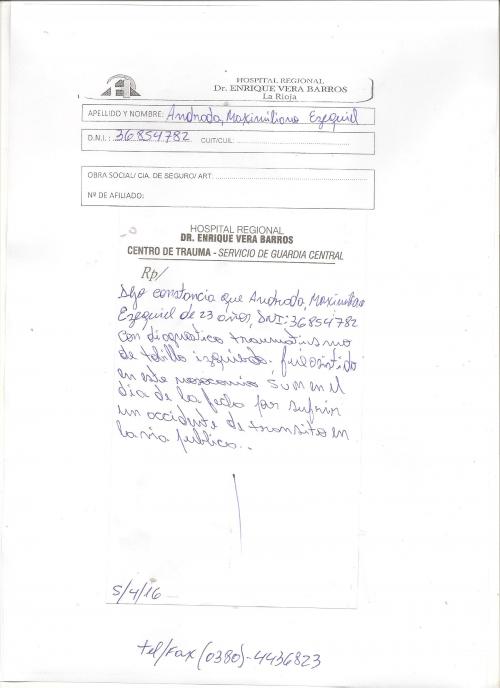 HOSPITAL REGIONAL
Dr. ENRIQUE VERA BARROS
La Rioja
APELLIDO Y NOMBRE: Andrada, Maximiliano Ezequiel
D.N.I.: 36854782 CUIT/CUIL:
OBRA SOCIAL/ CIA. DE SEGURO/ ART:
Nº DE AFILIADO:
HOSPITAL REGIONAL
DR. ENRIQUE VERA BARROS
CENTRO DE TRAUMA - SERVICIO DE GUARDIA CENTRAL
Rp/
Dejo constancia que Andrada, Maximiliano
Ezequiel de 23 años, DNI: 36854782
con diagnostico traumatismo
de tobillo izquierdo. fue asistido
en este nosocomio en el
dia de la fecha por sufrir
un accidente de transito en
la via publica..
5/4/16
tel/Fax (0380)-4436823